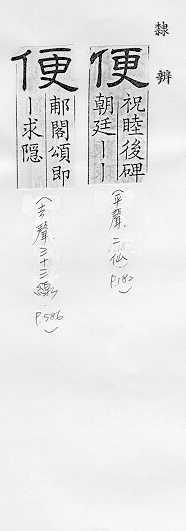 隸辨
便
祝睦後碑
朝廷｜｜
(平聲 二仙
P.182)
便
郙閣頌即
｜求隱
(去聲 三十三線
P.586)